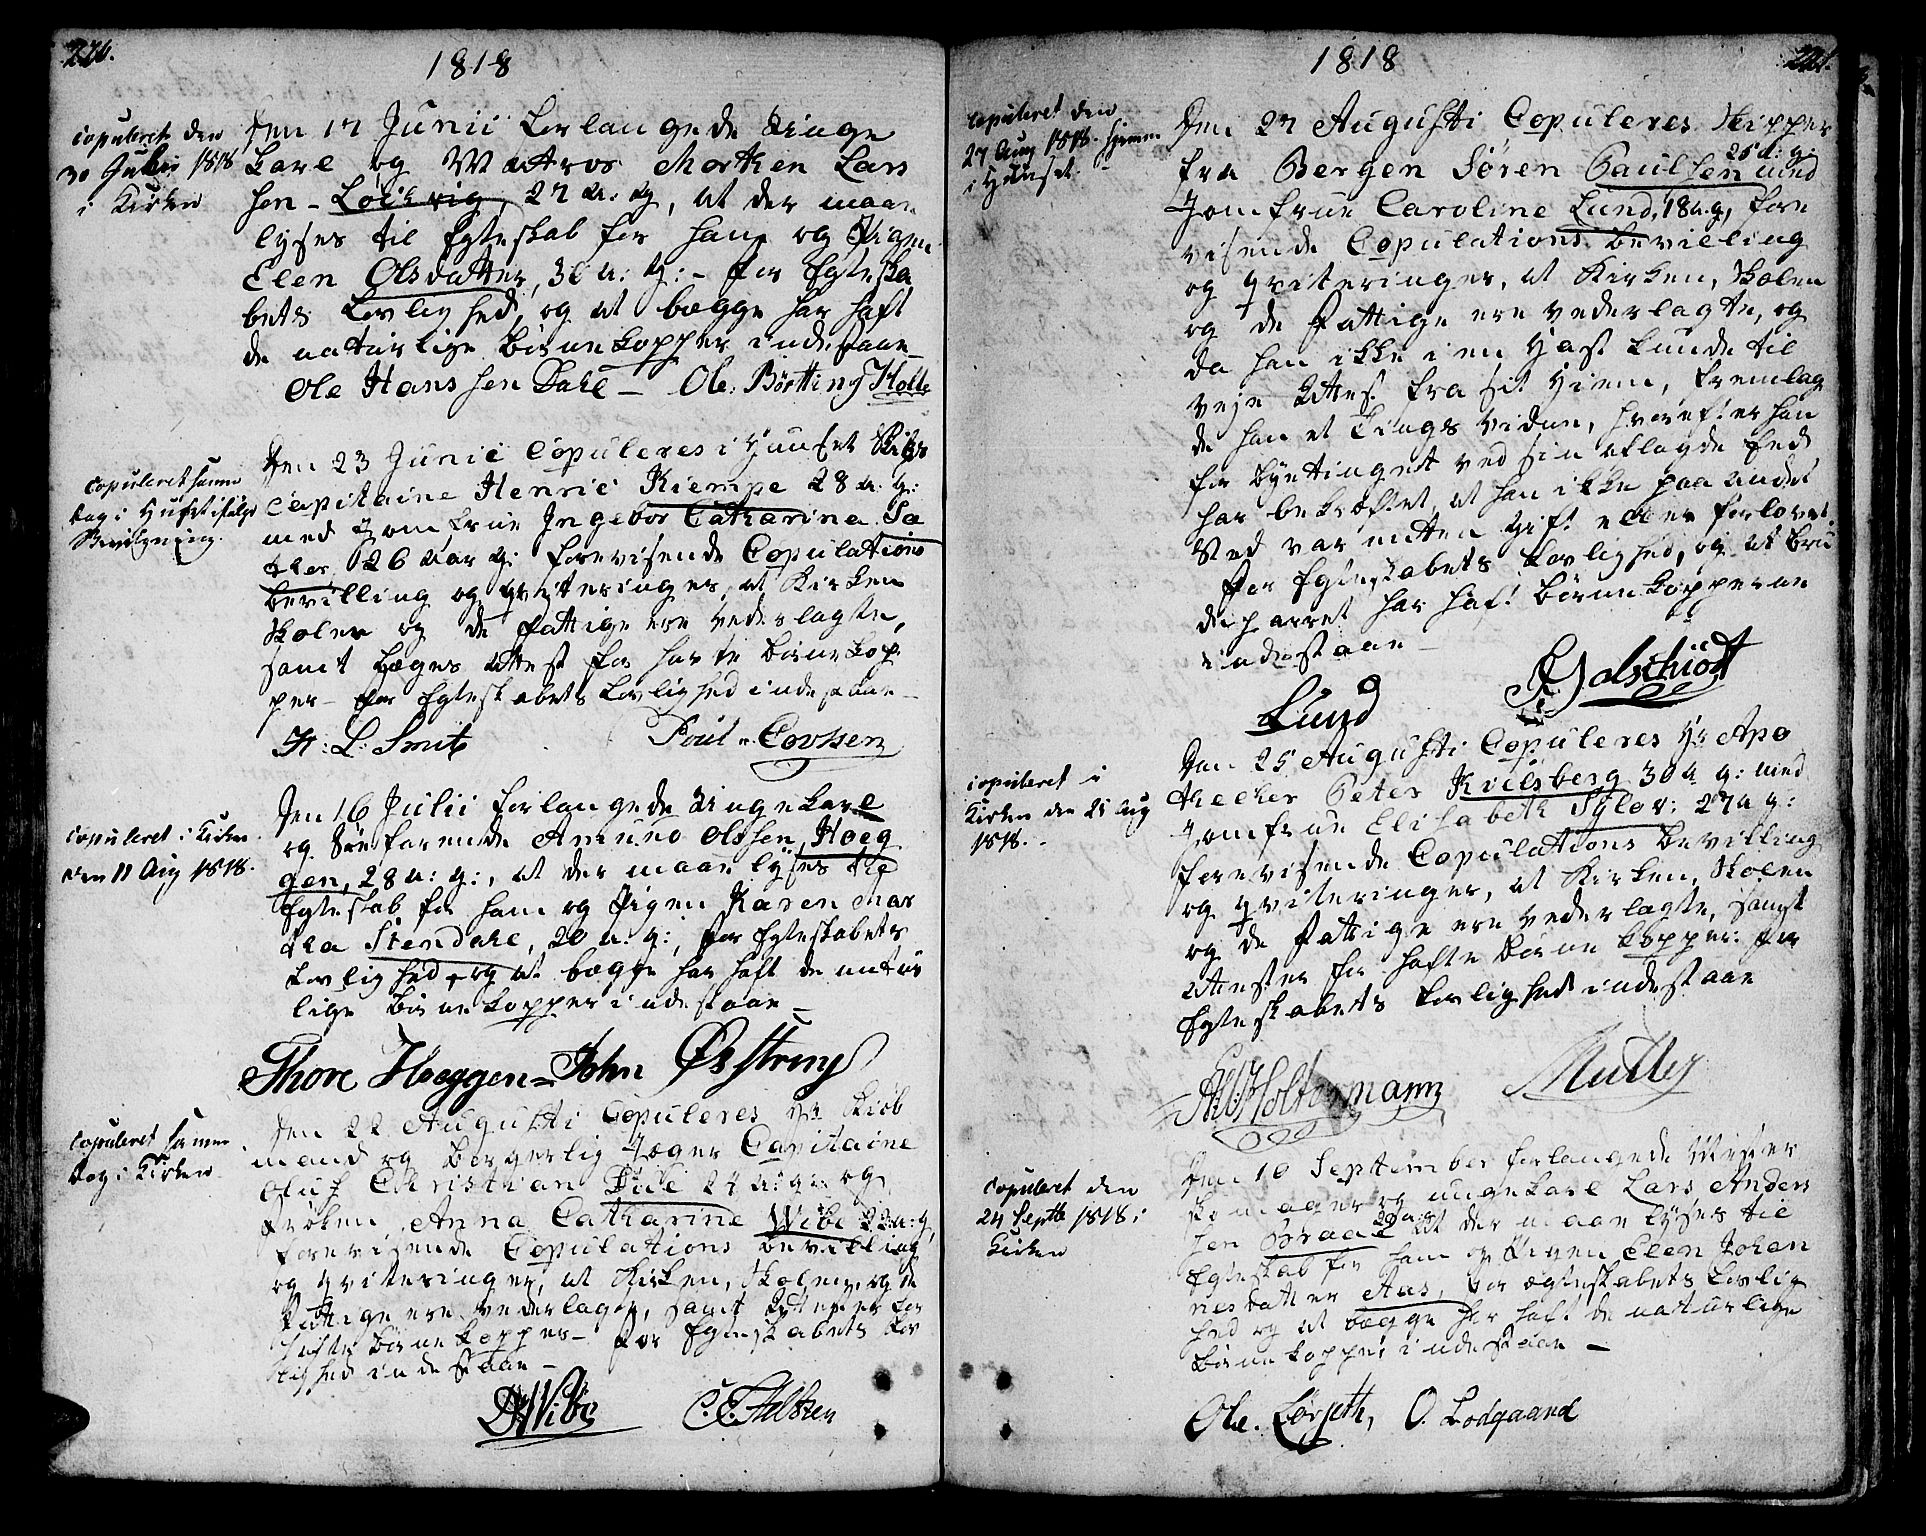 220.
1818
copuleret den
30 Julii 1818
i Kirken
Den 17 Junii forlangede Unge
Karl og Matros Morthen Lars
sen Løchvig, 27 a: g, at der maae
lyses til Egteskab for ham og Pigen
Elen Olsdatter, 30 a: g: - for Egteska
bets Lovlighed, og at begge har haft
de naturlige Børnekopper indestaae
Ole Hanssen Dahl - Ole. Børtting Holte
copuleret samme
dag i Huset ifølge
Bevilgning.
Den 23 Junii Copuleres i Huuset Skibs
Capitaine Henric Kiempe 28 a: g:
med Jomfrue Ingebor Catharina Sæ
ther, 26 aar g: forevisende Copulations
bevilling og qviteringer, at Kirken
Skolen og de fattige ere vederlagte,
samt Læges Attest for havte Børnekop
per - for Egteskabets Lovlighed indestaae
H: L: Smith
Poul Covssen
copuleret i Kirken
den 11 Aug 1818.
Den 16 Julii forlangede Ungekarl
og Søefarende Amund Olssen Hoeg
gen, 28 a: g:, at der maae lyses til
Egteskab for ham og Pigen Karen Mar
tha Stendahl, 20 a: g:, for Egteskabets
Lovlighed, og at begge har haft de natur
lige Børnekopper indestaae -
Thore Hoeggen - John Øststrøm
copuleret samme
dag i Kirken
Den 22 Augusti Copuleres Hr Kiøb
mand og borgerlig Jæger Capitaine
Oluf Christian 24 a: g: og
Frøken Anna Catharine Wibe 22 a: g,
forevisende Copulations bevilling
og qviteringer, at Kirken, Skolen, og de
fattige ere vederlagte, samt Attester for
hafte Børnekopper - for Egteskabets Lov
lighed indestaae -
DWibe
221.
1818
copuleret den
27 Aug 1818. hiemme
i Huuset.
Den 27 Augusti Copuleres Skipper
fra Bergen Søren Paulsen 25 a: g: med
Jomfrue Caroline Lund, 18 a. g, fore
visende Copulations bevilling
og qviteringer, at Kirken, Skolen
og de fattige ere vederlagte, og
da han ikke i en Hast kunde til
veje Attest fra sit Hiem, fremlag
de han et Tings Vidne, hvorefter han
for Byetinget ved sin aflagde Eed
har bekræftet, at han ikke paa andet
Sted var enten gift eller forlovet.
for Egteskabets Lovlighed, og at Bru
deparret har haft Børnekopperne
indestaae -
Lund
copuleret i
Kirken den 25 Aug
1818.
Den 25 Augusti Copuleres Hr Apo
theker Peter Kvilsberg 30 a g: med
Jomfrue Elisabeth Sylov: 27 a g:
forevisende Copulations bevilling
og qviteringer, at Kirken, Skolen
og de fattige ere vederlagte, samt
Attester for hafte Børnekopper: for
Egteskabets Lovlighed indestaae
Holtermann
Müller
copuleret den
24 Septbr 1818 i
Kirken
Den 10 September forlangede Mester
Skomager og ungekarl Lars Anders
sen Braae 29 a: g at der maae lyses til
Egteskab for ham og Pigen Elen Johan
nesdatter Aas, for ægteskabets Lovlig
hed og at begge har haft de naturlige
Børnekopper indestaae -
Ole. Lørseth, O. Lodgaard